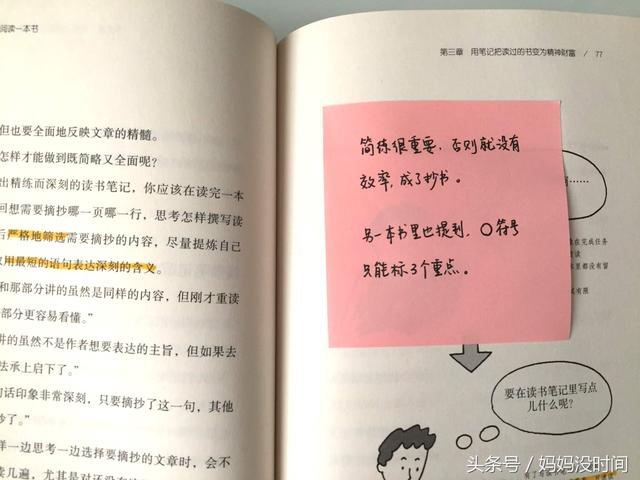 阅读一本书
但也要全面地反映文章的精髓。
怎样才能做到既简略又全面呢?
出精练而深刻的读书笔记,你应该在读完一本
回想需要摘抄哪一页哪一行,思考怎样撰写读
后严格地筛选需要摘抄的内容,尽量提炼自己
用最短的语句表达深刻的含义。
和那部分讲的虽然是同样的内容,但刚才重读
部分更容易看懂。”
讲的虽然不是作者想要表达的主旨,但如果去
去承上启下了。”
句话印象非常深刻,只要摘抄了这一句,其他
抄了。”
样一边思考一边选择要摘抄的文章时,会不
读几遍,尤其是对还没有
第三章 用笔记把读过的书变为精神财富 / 77
简练很重要,否则就没有
效率,成了抄书。
另一本书里也提到,〇符号
只能标3个重点。
……
在完成任务
里都没有留
有限
要在读书笔记里写点
儿什么呢?
头条号 / 妈妈没时间